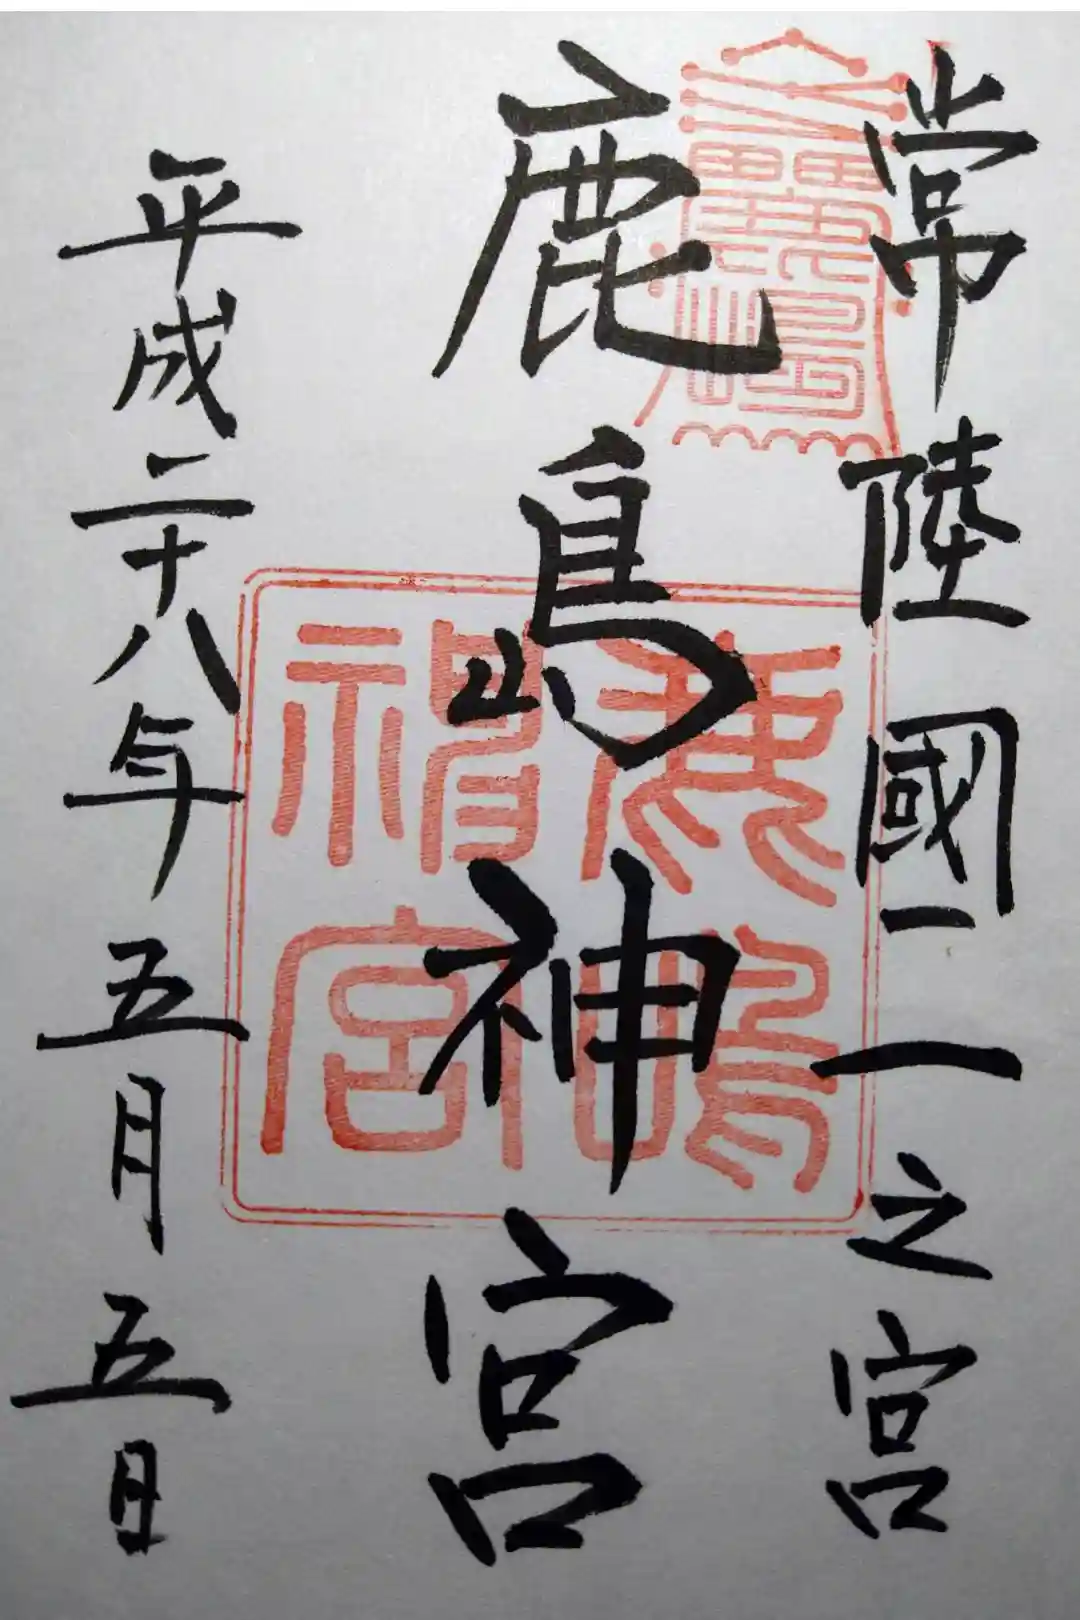 常陸國一之宮
鹿島神宮
鹿嶋
神宮
平成二十八年五月五日